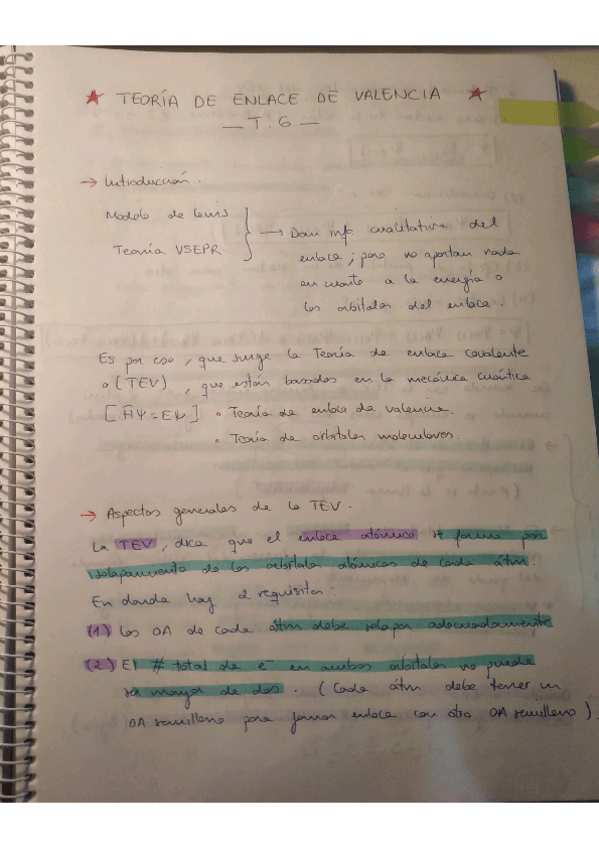 ★ TEORÍA DE ENLACE DE VALENCIA ★
— T.6 —
→ Introducción.
Modelo de Lewis
Teoría VSEPR
→ Dan info cualitativa del
enlace; pero no aportan nada
en cuanto a la energía o
los orbitales del enlace.
Es por eso, que surge la Teoría de enlace covalente
o (TEV), que están basados en la mecánica cuántica
[ĤΨ=EΨ] • Teoría de enlace de valencia.
• Teoría de orbitales moleculares.
→ Aspectos generales de la TEV.
La TEV, dice que el enlace atómico se forma por
solapamiento de los orbitales atómicos de cada átm.
En donde hay 2 requisitos:
(1) Los OA de cada átm debe solapar adecuadamente
(2) El # total de e⁻ en ambos orbitales no puede
ser mayor de dos. (Cada átm debe tener un
OA semilleno para formar enlace con otro OA semilleno)